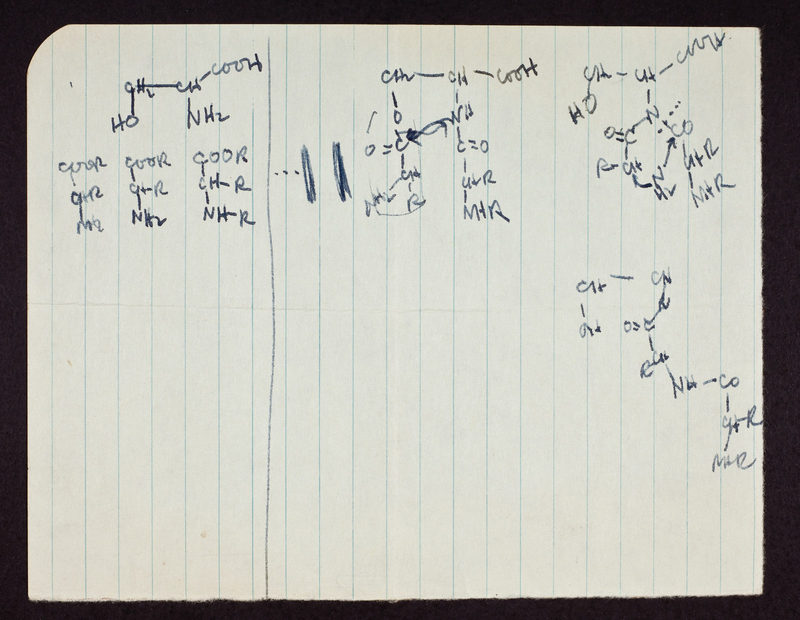 CH2 — CH — COOH
HO NH2
COOR COOR COOR
CHR CH-R CH-R
NH2 NH2 NH-R
CH2 — CH — COOH
O NH
O=C C=O
CH CHR
NH2 R NHR
CH2 — CH — COOH
HO N
O=C CO
R-CH N CHR
H2 NHR
CH — CH
OH
O=C
RCH
NH — CO
CH-R
NHR